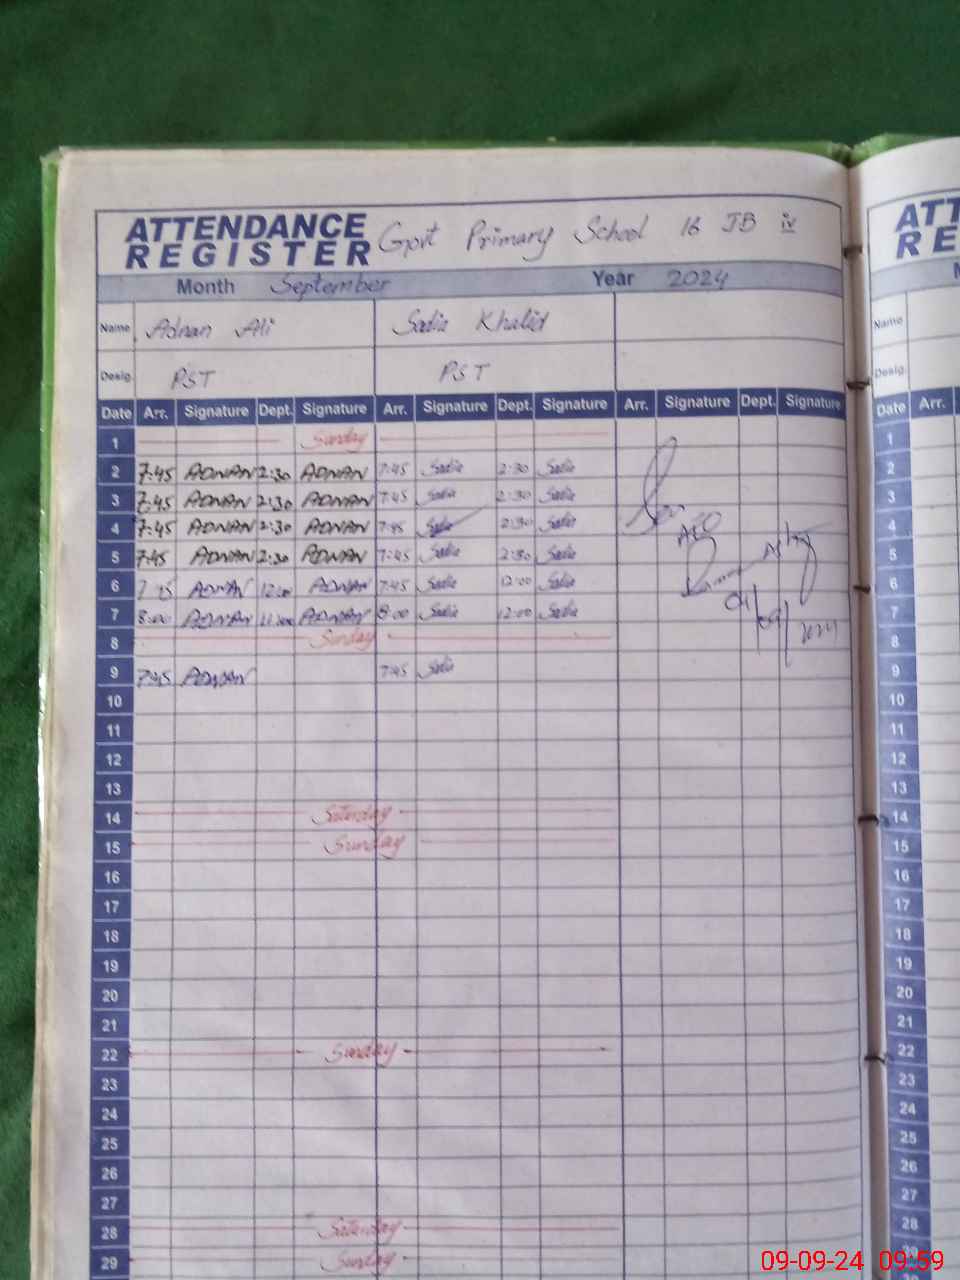 ATTENDANCE REGISTER Govt Primary School 16 JB iv
Month September Year 2024
Name Adnan Ali Sadia Khalid
Desig. PST PST
Date Arr. Signature Dept. Signature Arr. Signature Dept. Signature Arr. Signature Dept. Signature
1 Sunday
2 7:45 ADNAN 2:30 ADNAN 7:45 Sadia 2:30 Sadia
3 7:45 ADNAN 2:30 ADNAN 7:45 Sadia 2:30 Sadia
4 7:45 ADNAN 2:30 ADNAN 7:45 Sadia 2:30 Sadia
5 7:45 ADNAN 2:30 ADNAN 7:45 Sadia 2:30 Sadia
6 ADNAN ADNAN 7:45 Sadia 12:00 Sadia
7 8:00 ADNAN ADNAN 8:00 Sadia 12:00 Sadia
8 Sunday
9 7:45 ADNAN 7:45 Sadia
10
11
12
13
14 Saturday
15 Sunday
16
17
18
19
20
21
22 Sunday
23
24
25
26
27
28 Saturday
29 Sunday
AEO
ATT
RE
Name
Desig.
Date Arr.
1
2
3
4
5
6
7
8
9
10
11
12
13
14
15
16
17
18
19
20
21
22
23
24
25
26
27
28
09-09-24 09:59